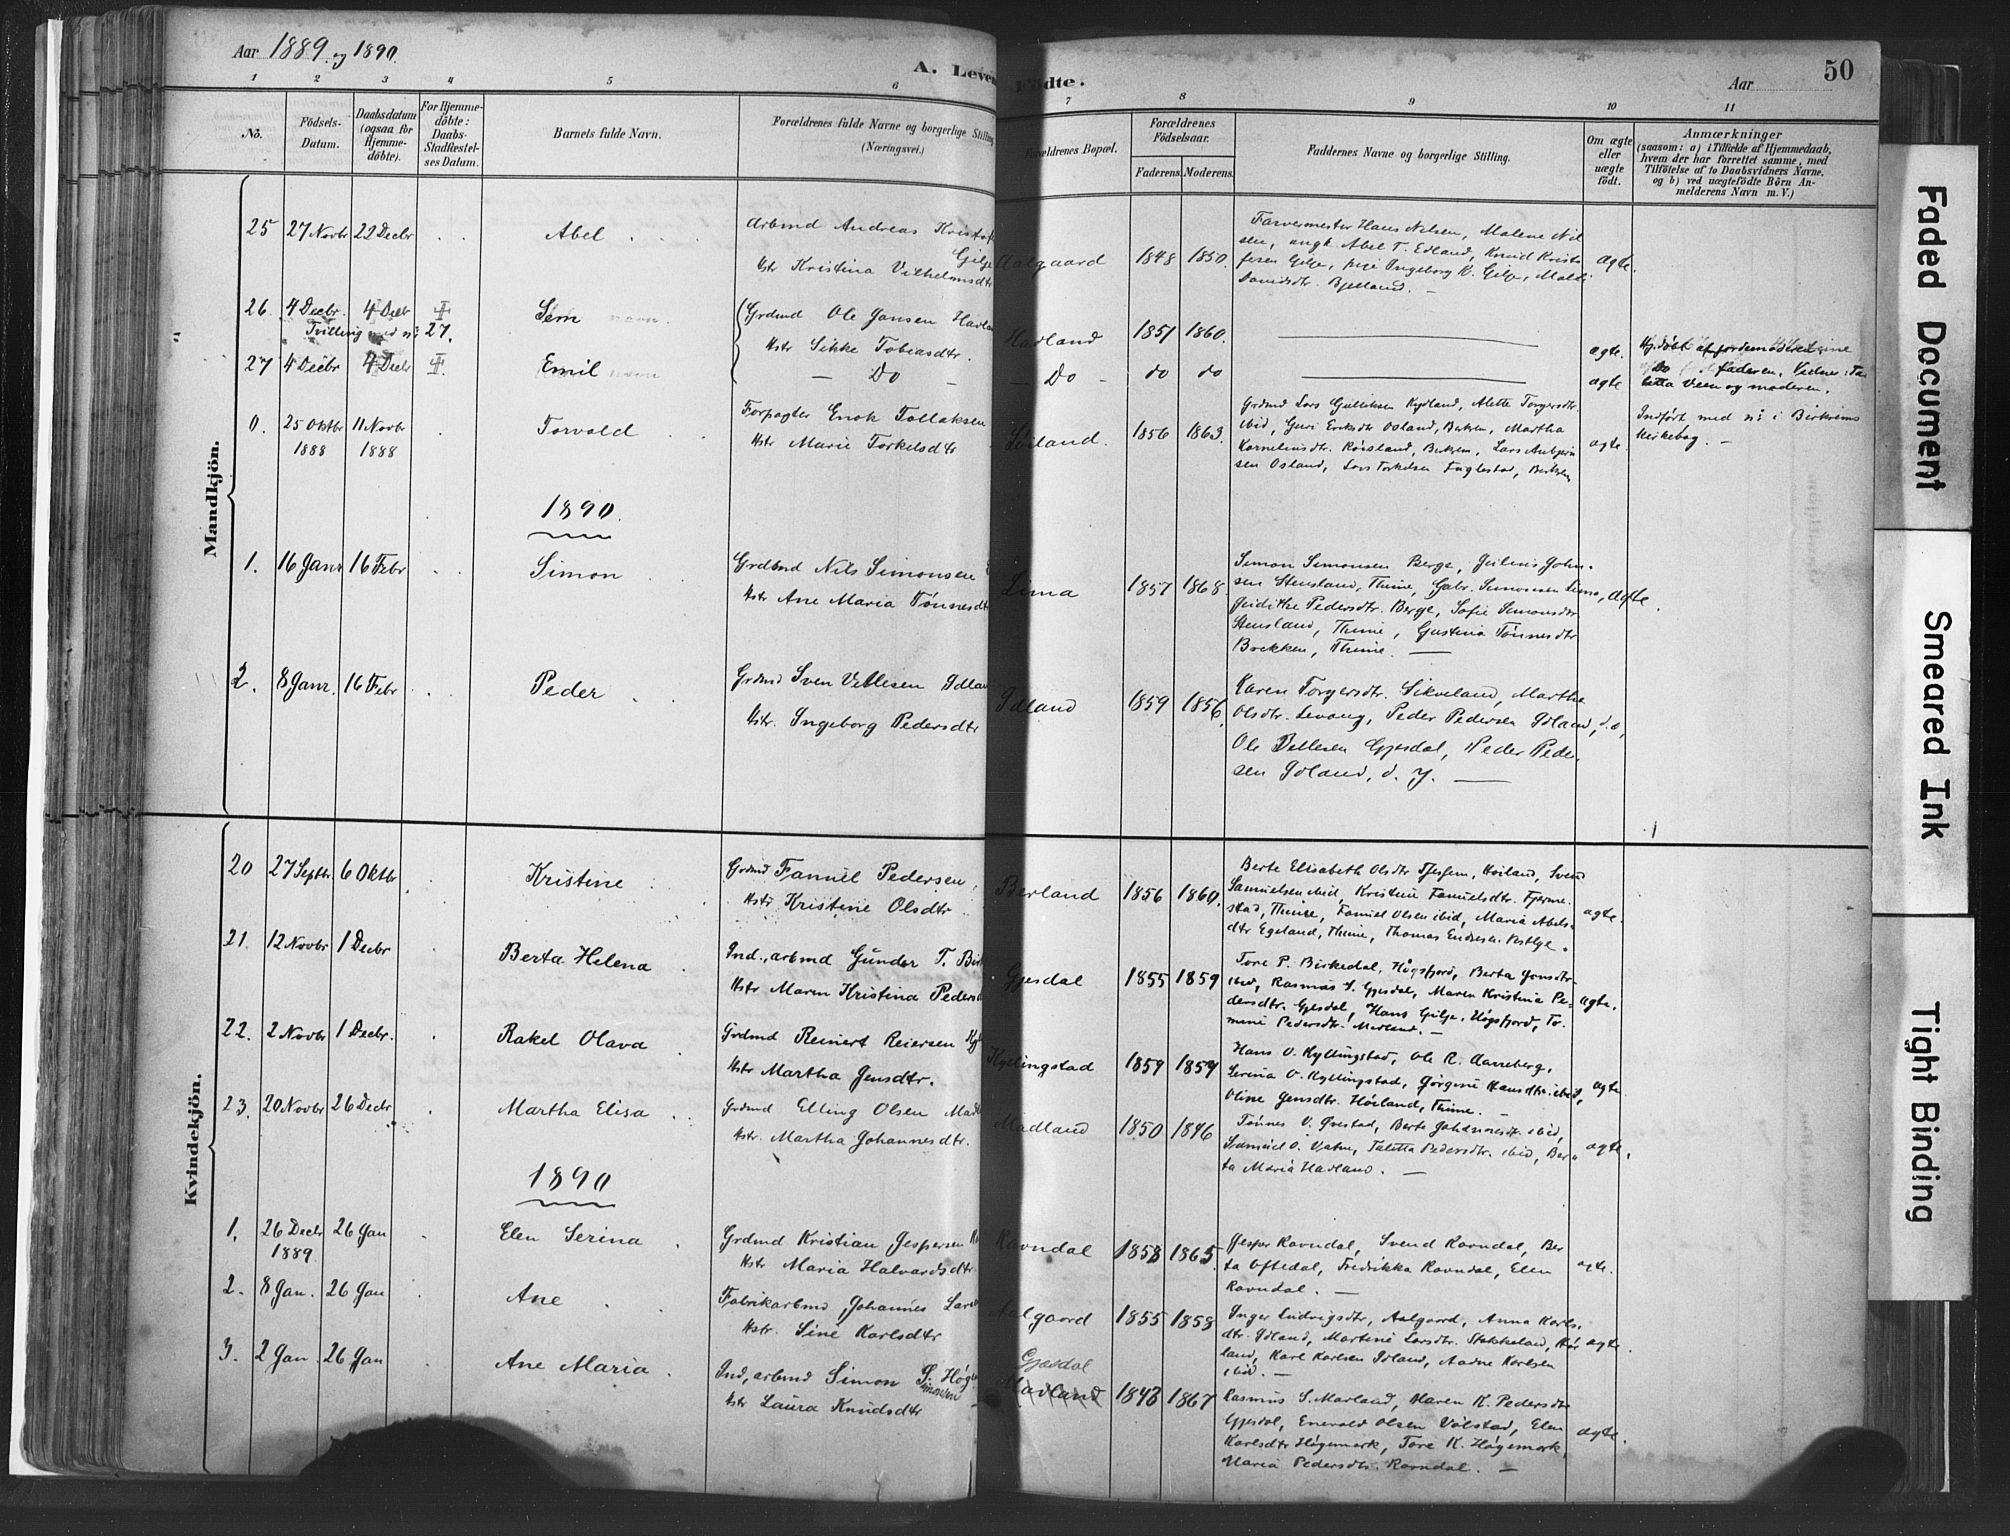 Aar 1889 og 1890.
A. Levende Fødte.
Aar
50
1 2 3 4 5 6 7 8 9 10 11
No.
Fødsels-
Datum.
Daabsdatum
(ogsaa for
Hjemme-
døbte).
For Hjemme-
døbte:
Daabs-
Stadfæstel-
ses Datum.
Barnets fulde Navn.
Forældrenes fulde Navne og borgerlige Stilling
(Næringsvei.)
Forældrenes Bopæl.
Forældrenes
Fødselsaar.
Faderens. Moderens.
Faddernes Navne og borgerlige Stilling.
Om ægte
eller
uægte
født.
Anmærkninger
(saasom: a) i Tilfælde af Hjemmedaab,
hvem der har forrettet samme, med
Tilføielse af to Daabsvidners Navne.
og b) ved uægtefødte Børn An-
melderens Navn m. V.)
Mandkjøn.
25 27 Novbr 22 Decbr Abel Arbmd Andreas Kristof
Gilje
Hstr Kristina Vilhelmsdtr Aalgaard 1848 1850.
Farvermester Hans Nilsen, Malene Nil
sen, ungk. Abel T. Edland, Knud Kristo
fersen Gilje, pige Ingeborg K. Gilje, Malli
Davidsdtr. Bjelland. ægte.
26 4 Decbr. 4 Decbr Sem Grdmd Ole Jansen Havland
Tvilling med n: 27.
Hstr Sikke Tobiasdtr. Havland 1851 1860. ægte.
27 4 Decbr 4 Decbr Emil Do Do do do ægte
faderen,
og moderen.
0. 25 Oktbr 11 Novbr
1888 1888
Torvald Forpagter Enok Tollaksen
Hstr Marie Torkelsdtr 1856 1863.
Grdmd Lars Gulliksen Kydland, Alette Torgersdtr.
ibid, Guri Eriksdtr Osland, Birkrem, Martha
Kornelius dtr. Røisland, Birkrem, Lars
sen Osland, Lars Torkelsen ægte.
Indført med n: i Birkrems
Kirkebog.
1890.
1. 16 Janr 16 Febr Simon Grdbmd Nils Simonsen
Hstr Ane Maria Tønnesdtr Lima 1857 1868.
Simon Simonsen Berge, Julius John-
sen Stensland, Thime, Gabr. Simonsen Lima, ægte.
Judithe Pedersdtr. Berge, Sofie Simonsdtr
Stensland, Thime, Gustina Tønnesdtr
Brekken, Thime.
2. 8 Janr. 16 Febr Peder Grdmd Sven Vetlesen Idland
Hstr. Ingeborg Pedersdtr Idland 1859 1856.
Karen Torgersdtr. Sikveland, Martha
Olsdtr. Levang, Peder Pedersen Idland, d. æ,
Ole Gjesdal, Peder Peder-
sen Idland, d. y.
Kvindekjøn.
20 27 Septbr 6 Oktbr Kristine Grdmd Samuel Pedersen,
Hstr Kristine Olsdtr Berland 1856 1860.
Berte Elisabeth Olsdtr Høiland, Svend
Samuelsen ibid, Kristine Samuelsdtr.
stad, Thime, Samuel Olsen ibid, Maria Abels-
dtr Egeland, Thime, Thomas ægte.
21. 12 Novbr 1 Decbr Berta Helena Ind., arbmd Gunder T.
Hstr Maren Kristina Gjesdal 1855 1859
Tore P. Birkedal, Høgsfjord, Berta Jonsdtr
ibid, Rasmus S. Gjesdal, Maren Kristina Pe-
dersdtr. Gjesdal, Hans Gilje, Høgsfjord, To-
mine Pedersdtr. Madland. ægte.
22. 2 Novbr 1 Decbr. Rakel Olava Grdmd Reinert Reiersen
Hstr Martha Jensdtr. Kyllingstad 1859 1859
Hans O. Kyllingstad, Ole R. Aaneberg,
Serina O. Kyllingstad, Jørgine Hansdtr. ibid,
Oline Jensdtr. Høiland, Thime. ægte
23. 20 Novbr 26 Decbr Martha Elisa Grdmd Elling Olsen Madland
Hstr. Martha Johannesdtr. Madland 1850 1846
Tønnes O. Ørestad, Berte Johannesdtr. ibid,
Samuel O. Vatne, Talitta Pedersdtr. ibid, Ber-
ta Maria Havland. ægte.
1890
1. 26 Decbr 26 Jan
1889.
Elen Serina Grdmd Kristian Jespersen
Hstr Maria Halvardsdtr. Ravndal 1858 1865.
Jesper Ravndal, Svend Ravndal, Ber
ta Oftedal, Fredrikka Ravndal, Elen
Ravndal. ægte.
2. 8 Jan. 26 Jan Ane Fabrikarbmd Johannes
Hstr. Sine Karlsdtr Aalgaard 1855 1858
Inger Ludvigsdtr, Aalgaard, Anna Karls-
dtr. Idland, Martine Larsdtr. Stokkeland, Hør
land, Karl Karlsen Idland, Aadne Karlsen
ibid. ægte.
3. 2 Jan. 26 Jan Ane Maria. Ind, arbmd Simon S. Høg
Simonsen
Hstr Laura Knudsdtr Gjesdal
Madland 1843 1867
Rasmus S. Madland, Maren K. Pedersdtr
Gjesdal, Enevald Olsen Vølstad, Elen
Karlsdtr Høgemork, Tore K. Høgemork,
Maria Pedersdtr. Ravndal. ægte.
Faded Document
Smeared Ink
Tight Binding